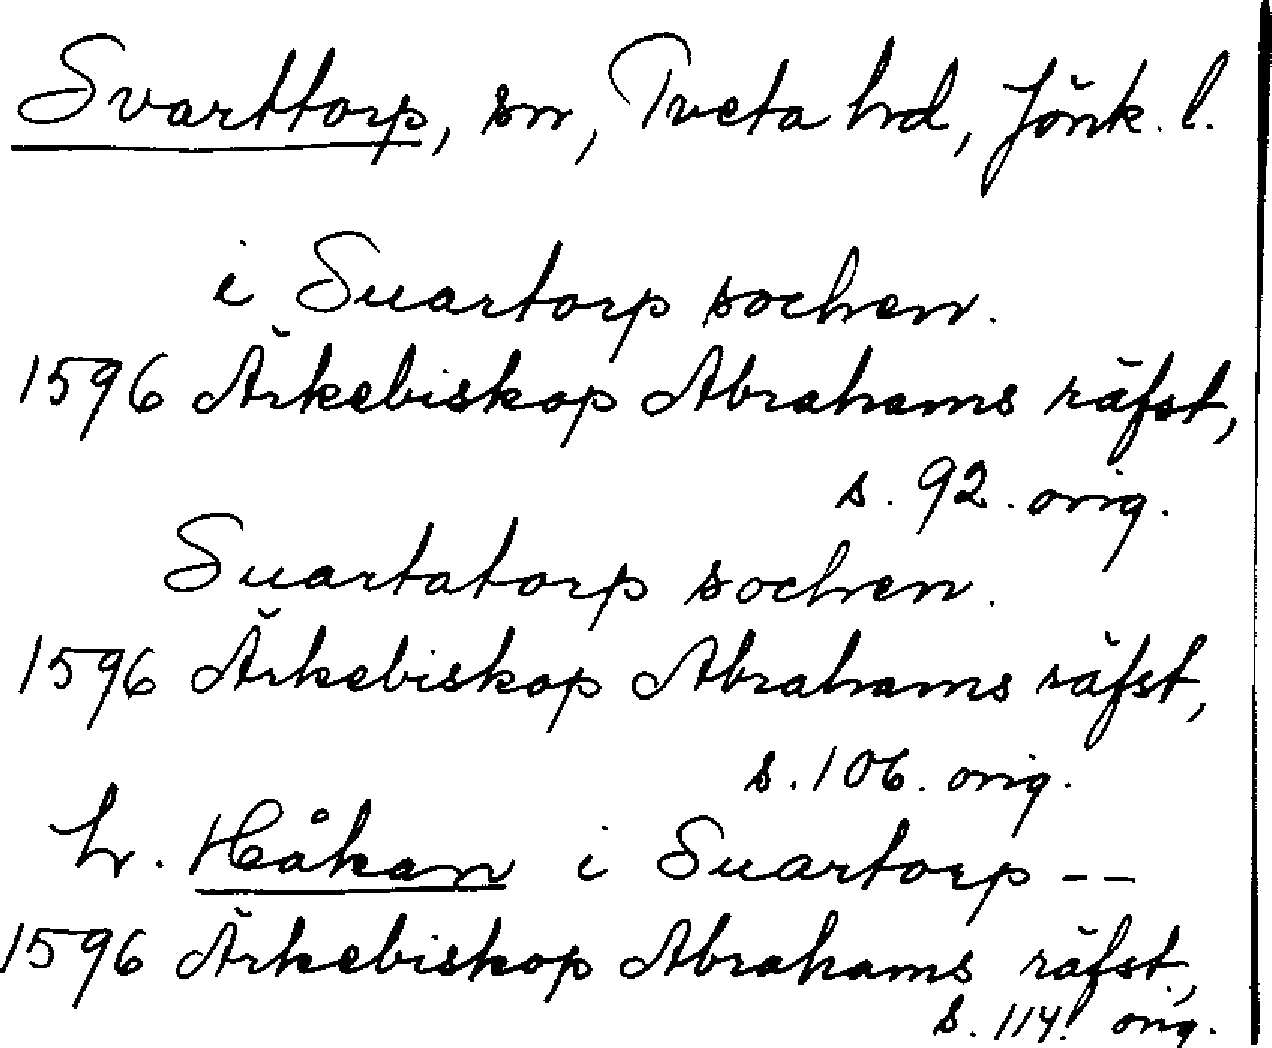 Svarttorp, sn, Tveta hd, Jönk. l.
i Suartorp sochen.
1596 Ärkebiskop Abrahams räfst,
s. 92. orig.
Suartatorp sochen.
1596 Ärkebiskop Abrahams räfst,
s. 106. orig.
h. Håkan i Suartorp --
1596 Ärkebiskop Abrahams räfst,
s. 114. orig.